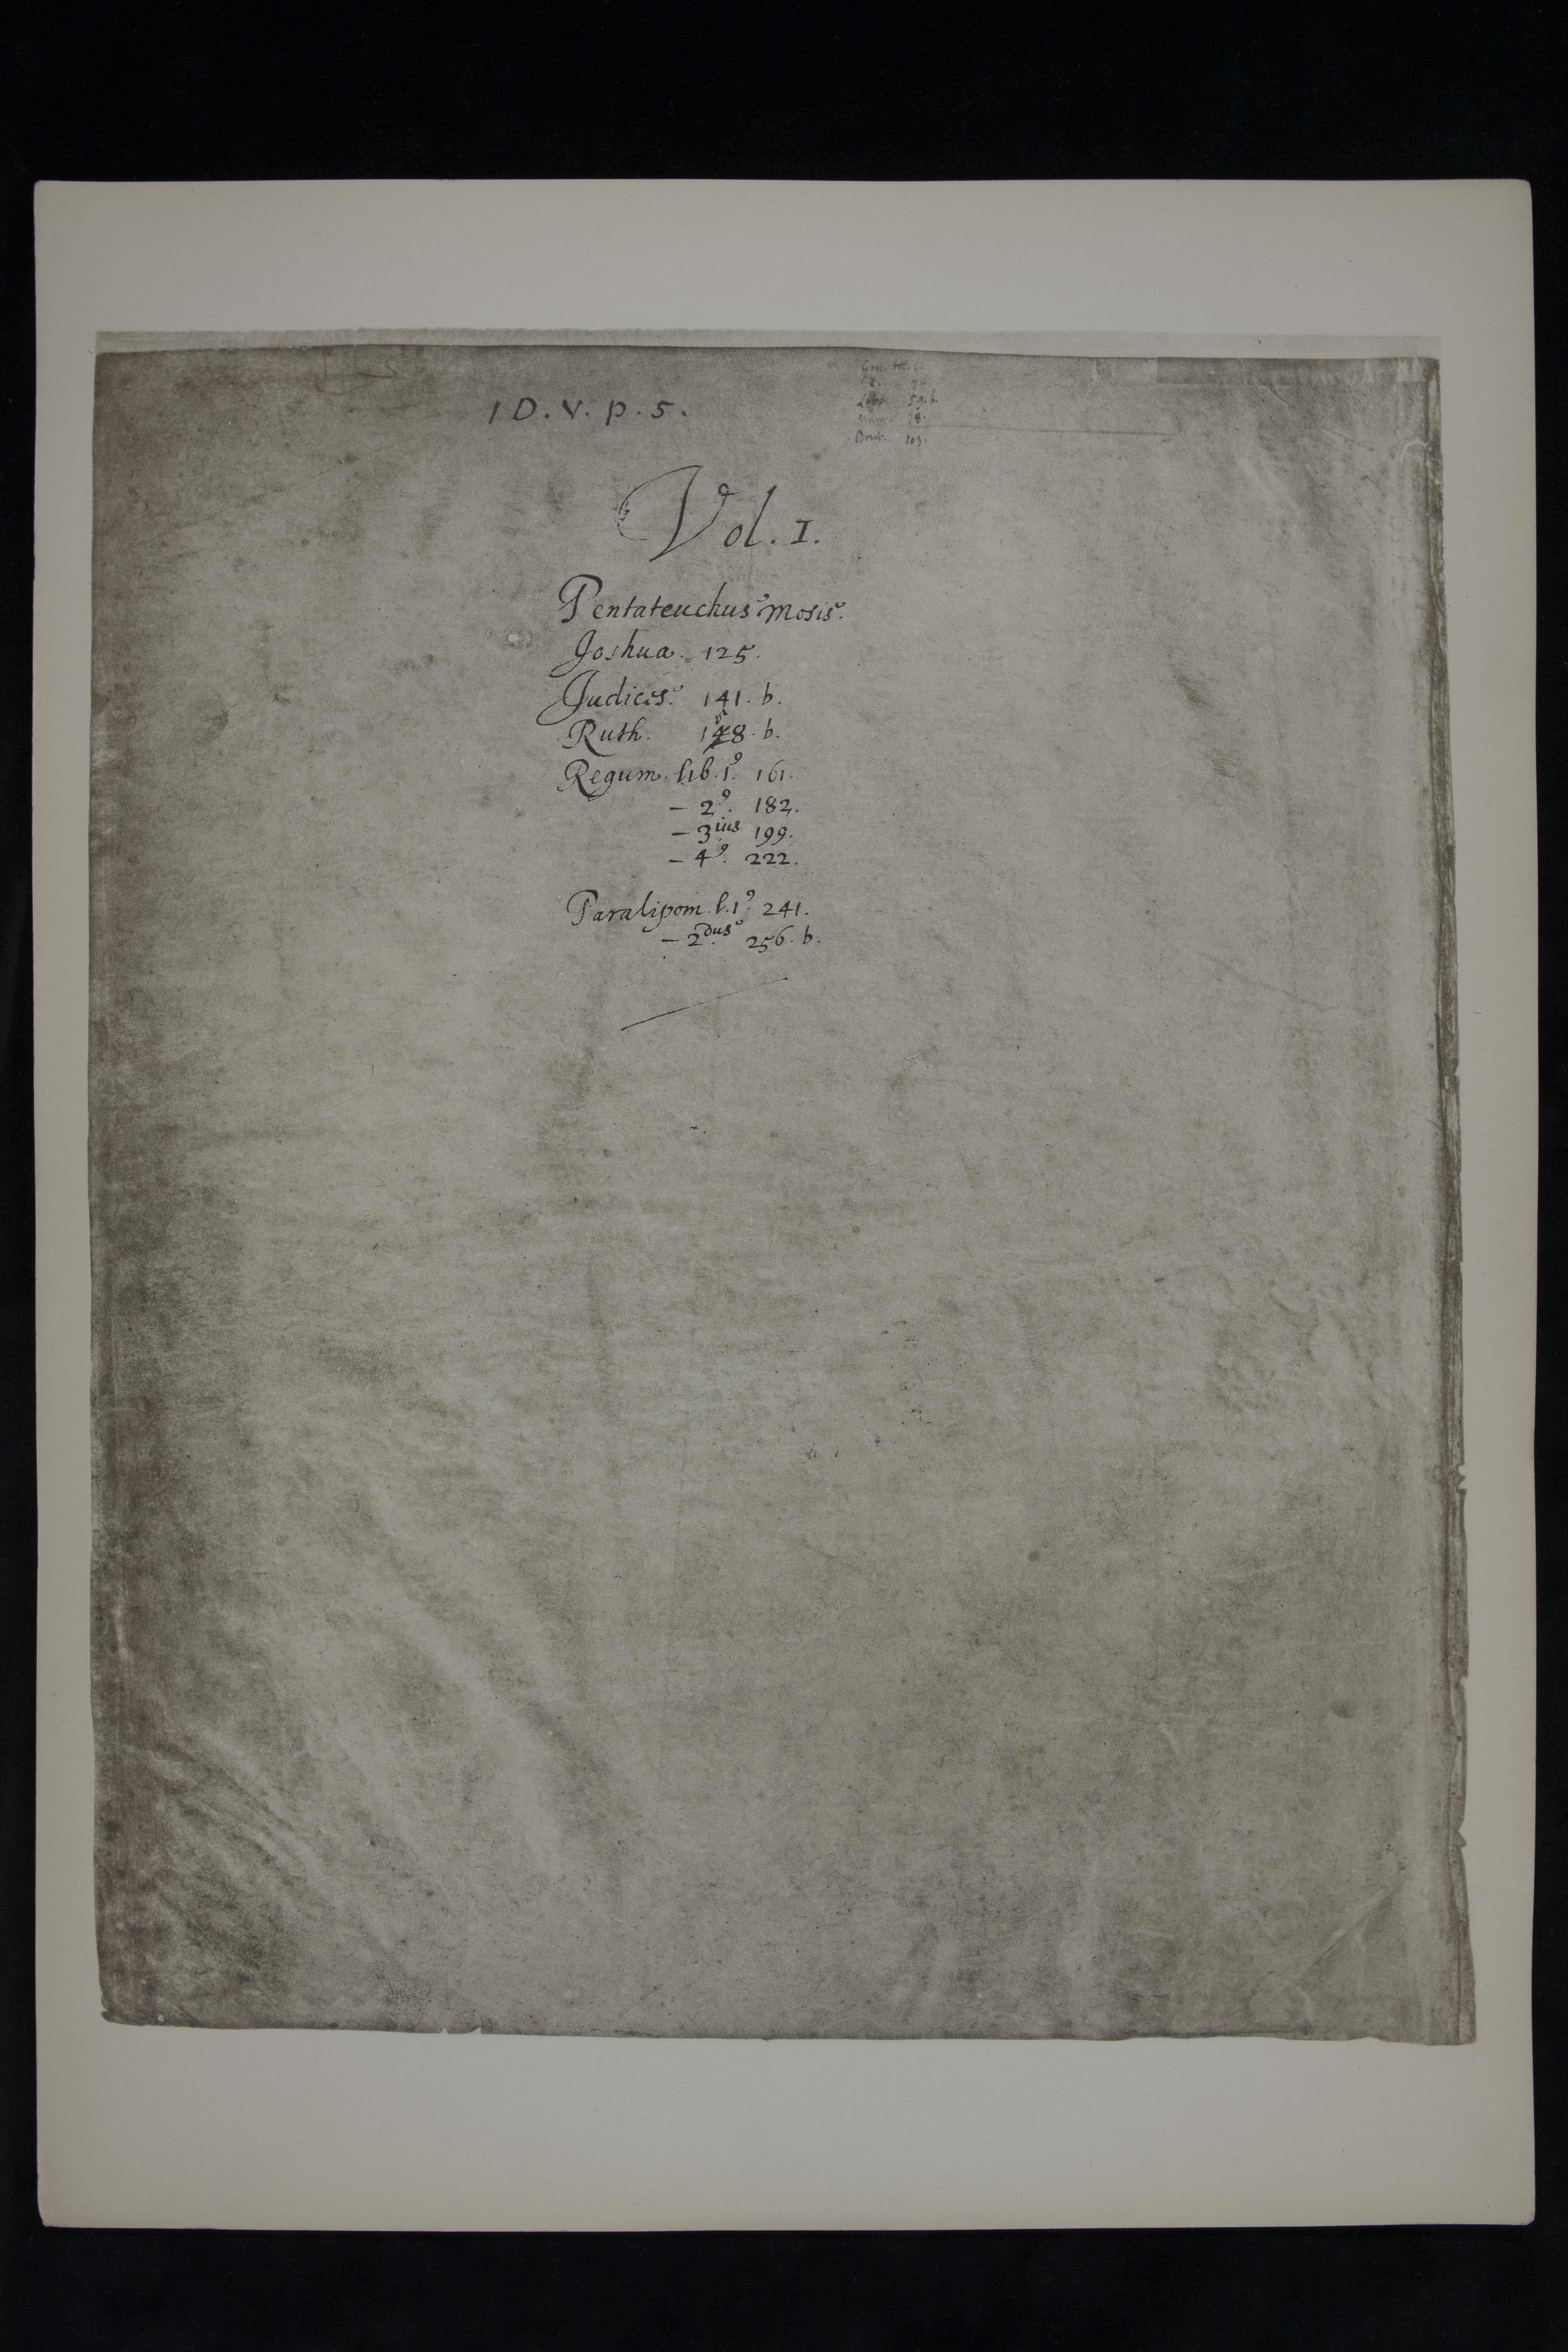 1 D. V. p. 5.
Deut. 103.
Vol. I.
Pentateuchus Mosis.
Joshua. 125.
Judices. 141. b.
Ruth. 158. b.
Regum. lib. 1⁹. 161.
– 2⁹. 182.
– 3ius 199.
– 4⁹. 222.
Paralipom. l. 1⁹. 241.
– 2dus 256. b.